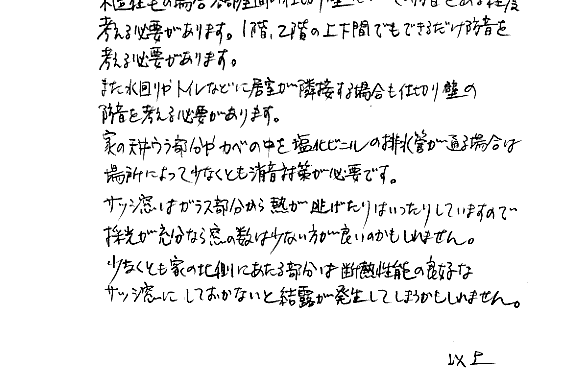 考える必要があります。1階、2階の上下間でもできるだけ防音を
考える必要があります。
また水回りやトイレなどに居室が隣接する場合も仕切り壁の
防音を考える必要があります。
家の天井ウラ部分やカベの中を塩化ビニールの排水管が通る場合は
場所によって少なくとも消音対策が必要です。
サッシ窓はガラス部分から熱が逃げたりはいったりしていますので
採光が充分なら窓の数は少ない方が良いのかもしれません。
少なくとも家の北側にあたる部分は断熱性能の良好な
サッシ窓にしておかないと結露が発生してしまうかもしれません。
以上